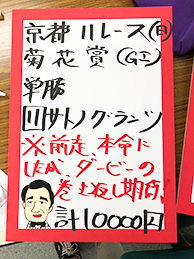 京都11レース(日)
菊花賞(GI)
単勝
11サトノグランツ
※前走、本命に
したが、ダービーの
巻き返し期待!
計10000円